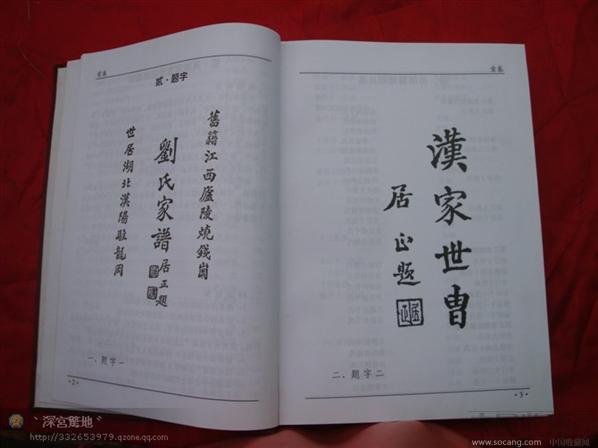 貳·题字
舊籍江西廬陵燒錢崗
劉氏家譜
居正題
世居湖北漢陽駐龍岡
一、题字一
·2·
漢家世胄
居正題
居正
二、题字二
·3·
深宮驚地
http://332653979.qzone.qq.com
www.socang.com 中国收藏网